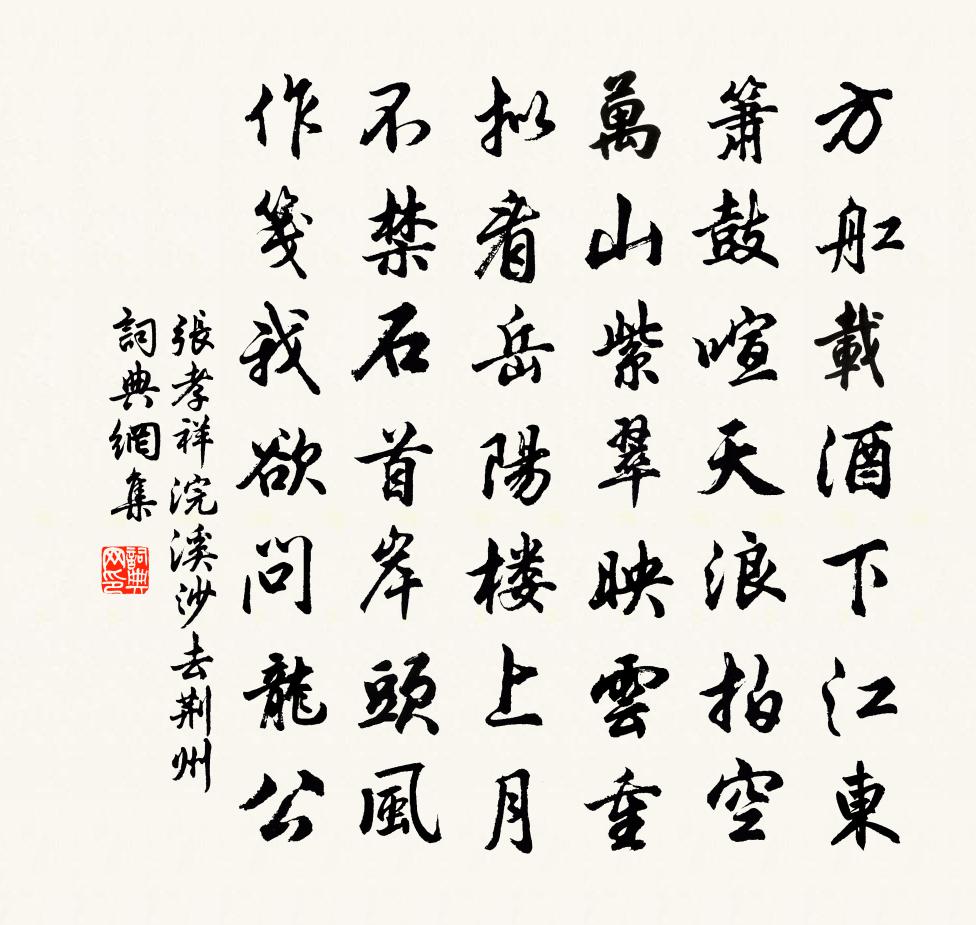 方舡載酒下江東
簫鼓喧天浪拍空
萬山紫翠映雲重
拟看岳陽楼上月
不禁石首岸頭風
作箋我欲問龍公
張孝祥浣溪沙去荆州
詞典網集
詞典网印